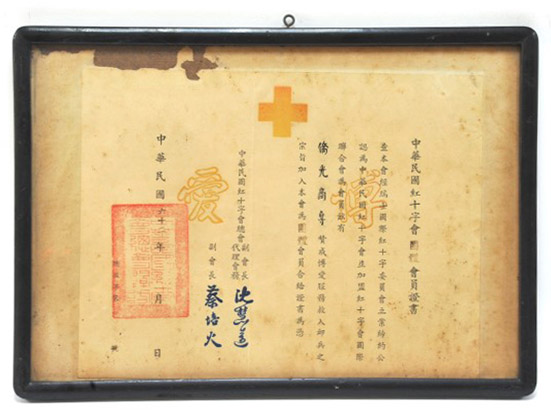 中華民國紅十字會團體會員證書
查本會經瑞士國際紅十字委員會立案締約公
認為中華民國紅十字會並加盟紅十字會國際
聯合會為會員茲有
僑光商專 贊成博愛服務救人卹兵之
宗旨加入本會為團體會員合給證書為憑
博愛
中華民國紅十字會總會副會長
代理會務 沈慧蓮
副會長 蔡培火
中華民國六十二年 月 日
號